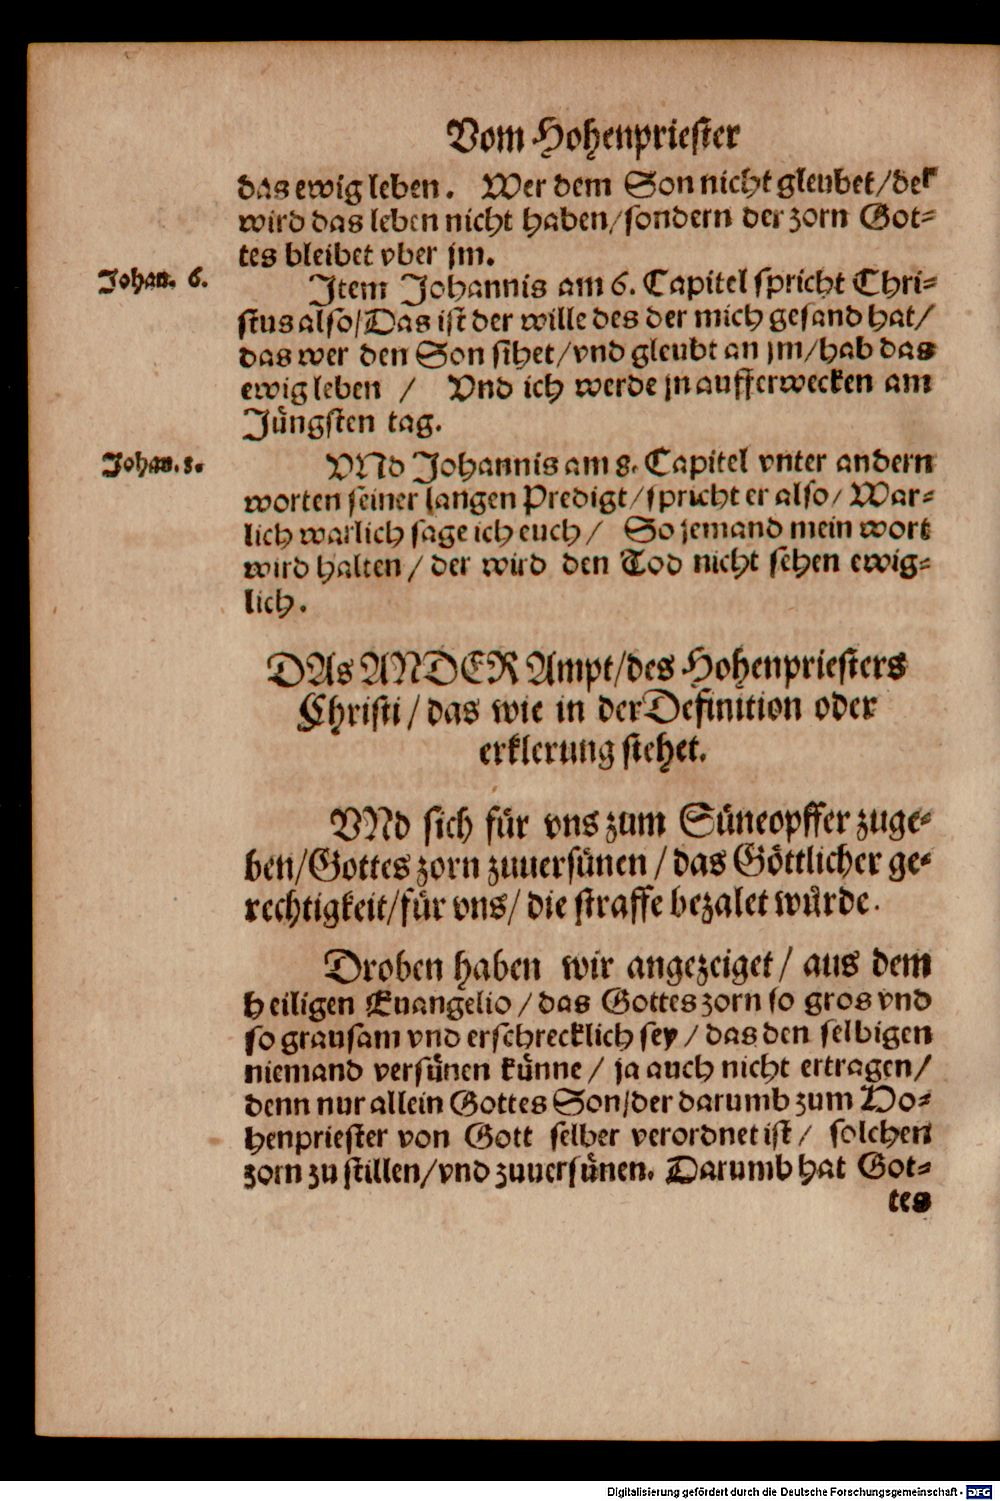 Vom Hohenpriester
das ewig leben. Wer dem Son nicht gleubet/der
wird das leben nicht haben/sondern der zorn Got-
tes bleibet vber jm.
Johan. 6.
Item Johannis am 6. Capitel spricht Chri-
stus also/Das ist der wille des der mich gesand hat/
das wer den Son sihet/vnd gleubt an jm/hab das
ewig leben / Vnd ich werde jn aufferwecken am
Jüngsten tag.
Johan. 8.
VNd Johannis am 8. Capitel vnter andern
worten seiner langen Predigt/spricht er also/ War-
lich warlich sage ich euch / So jemand mein wort
wird halten / der wird den Tod nicht sehen ewig-
lich.
DAs ANDER Ampt/des Hohenpriesters
Christi / das wie in der Definition oder
erklerung stehet.
VNd sich für vns zum Süneopffer zuge-
ben/Gottes zorn zuuersünen / das Göttlicher ge-
rechtigkeit/für vns/ die straffe bezalet würde.
Droben haben wir angezeiget / aus dem
heiligen Euangelio / das Gottes zorn so gros vnd
so grausam vnd erschrecklich sey / das den selbigen
niemand versünen künne / ja auch nicht ertragen /
denn nur allein Gottes Son/der darumb zum Ho-
henpriester von Gott selber verordnet ist / solchen
zorn zu stillen/vnd zuuersünen. Darumb hat Got-
tes
Digitalisierung gefördert durch die Deutsche Forschungsgemeinschaft - DFG